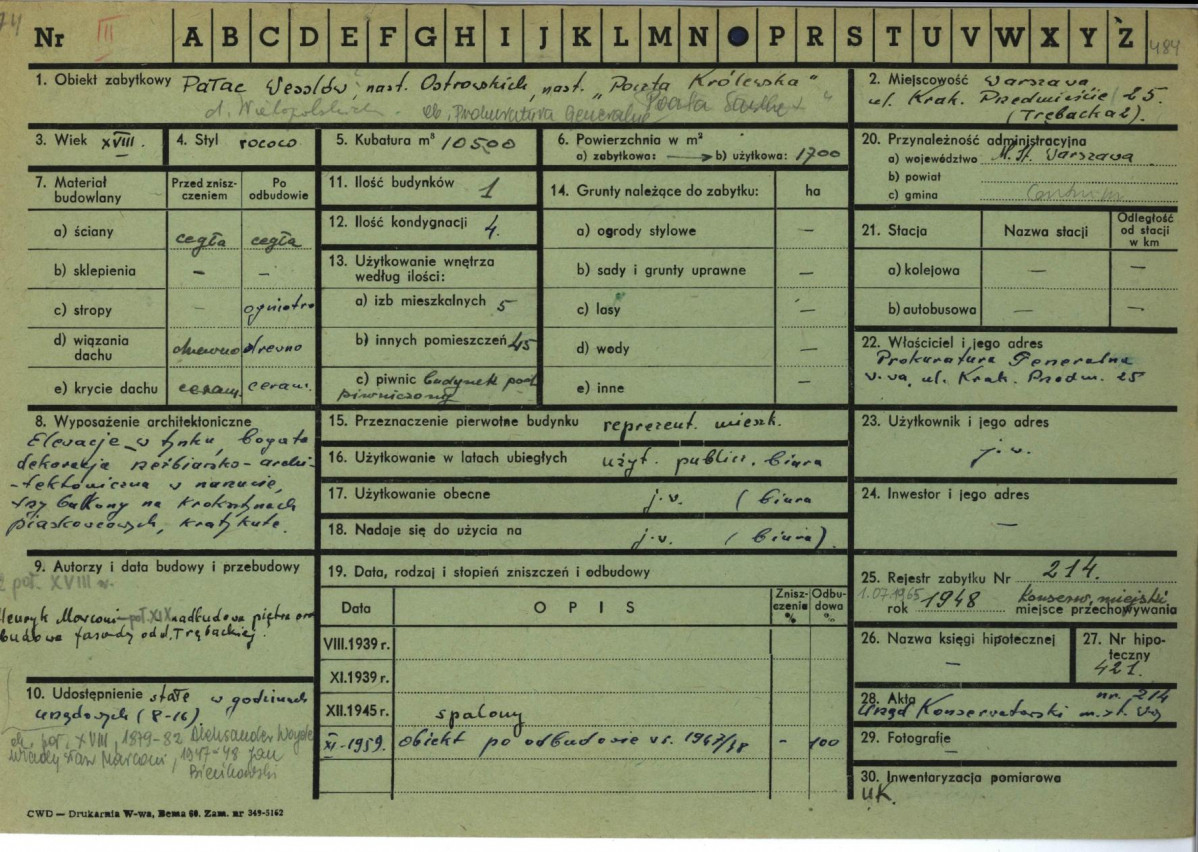 74
Nr III A B C D E F G H I J K L M N P R S T U V W X Y Ż
484
1. Obiekt zabytkowy Pałac Wesslów, nast. Ostrowskich, nast. „Poczta Królewska"
d. Wielopolskich. ob. Prokuratura Generalna Poczta Saska"
2. Miejscowość Warszawa
ul. Krak. Przedmieście 25.
(Trębacka 2).
3. Wiek XVIII.
4. Styl rococo
5. Kubatura m³ 10500
6. Powierzchnia w m²
a) zabytkowa: b) użytkowa: 1700
20. Przynależność administracyjna
a) województwo M. St. Warszawa
b) powiat
c) gmina
7. Materiał budowlany
Przed zniszczeniem
Po odbudowie
a) ściany cegła cegła
b) sklepienia – –
c) stropy – ogniotr
d) wiązania dachu drewno drewno
e) krycie dachu ceram. ceram.
11. Ilość budynków 1
12. Ilość kondygnacji 4.
13. Użytkowanie wnętrza
według ilości:
a) izb mieszkalnych 5
b) innych pomieszczeń 45
c) piwnic budynek pod
piwniczony
14. Grunty należące do zabytku: ha
a) ogrody stylowe –
b) sady i grunty uprawne –
c) lasy –
d) wody –
e) inne –
21. Stacja Nazwa stacji Odległość
od stacji
w km
a) kolejowa – –
b) autobusowa – –
22. Właściciel i jego adres
Prokuratura Generalna
W-wa, ul. Krak. Przedm. 25
8. Wyposażenie architektoniczne
Elewacje w tynku, bogata
dekoracja rzeźbiarsko-archi-
-tektoniczna w narzucie,
trzy balkony na kroksztynach
piaskowcowych, kraty kute.
15. Przeznaczenie pierwotne budynku reprezent. mieszk.
16. Użytkowanie w latach ubiegłych użyt. public. biura
17. Użytkowanie obecne j.w. (biura
18. Nadaje się do użycia na j.w. (biura)
23. Użytkownik i jego adres
j.w.
24. Inwestor i jego adres
–
9. Autorzy i data budowy i przebudowy
poł. XVIII w.
Henryk Marconi - poł. XIX nadbudowa piętra
budowa fasady od ul. Trębackiej.
10. Udostępnienie stałe w godzinach
urzędowych (8-16).
ok. poł. XVIII, 1879-82 Aleksander
Władysław Marconi, 1947-48 Jan
Bieńkowski
19. Data, rodzaj i stopień zniszczeń i odbudowy
Data OPIS Zniszczenia % Odbudowa %
VIII.1939 r.
XI.1939 r.
XII.1945 r. spalony
XI-1959. obiekt po odbudowie w r. 1947/48 – 100
25. Rejestr zabytku Nr 214.
1.07.1965
rok 1948 Konserw. miejski
miejsce przechowywania
26. Nazwa księgi hipotecznej
–
27. Nr hipoteczny
421.
28. Akta nr. 214
Urząd Konserwatorski m.st. W-wy
29. Fotografie
–
30. Inwentaryzacja pomiarowa
UK.
CWD — Drukarnia W-wa, Bema 60. Zam. nr 349-5162